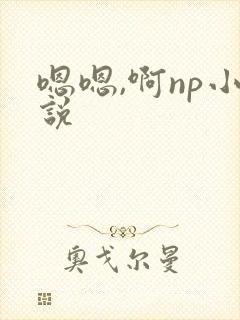 嗯嗯,啊np小
説
奥戈尔曼